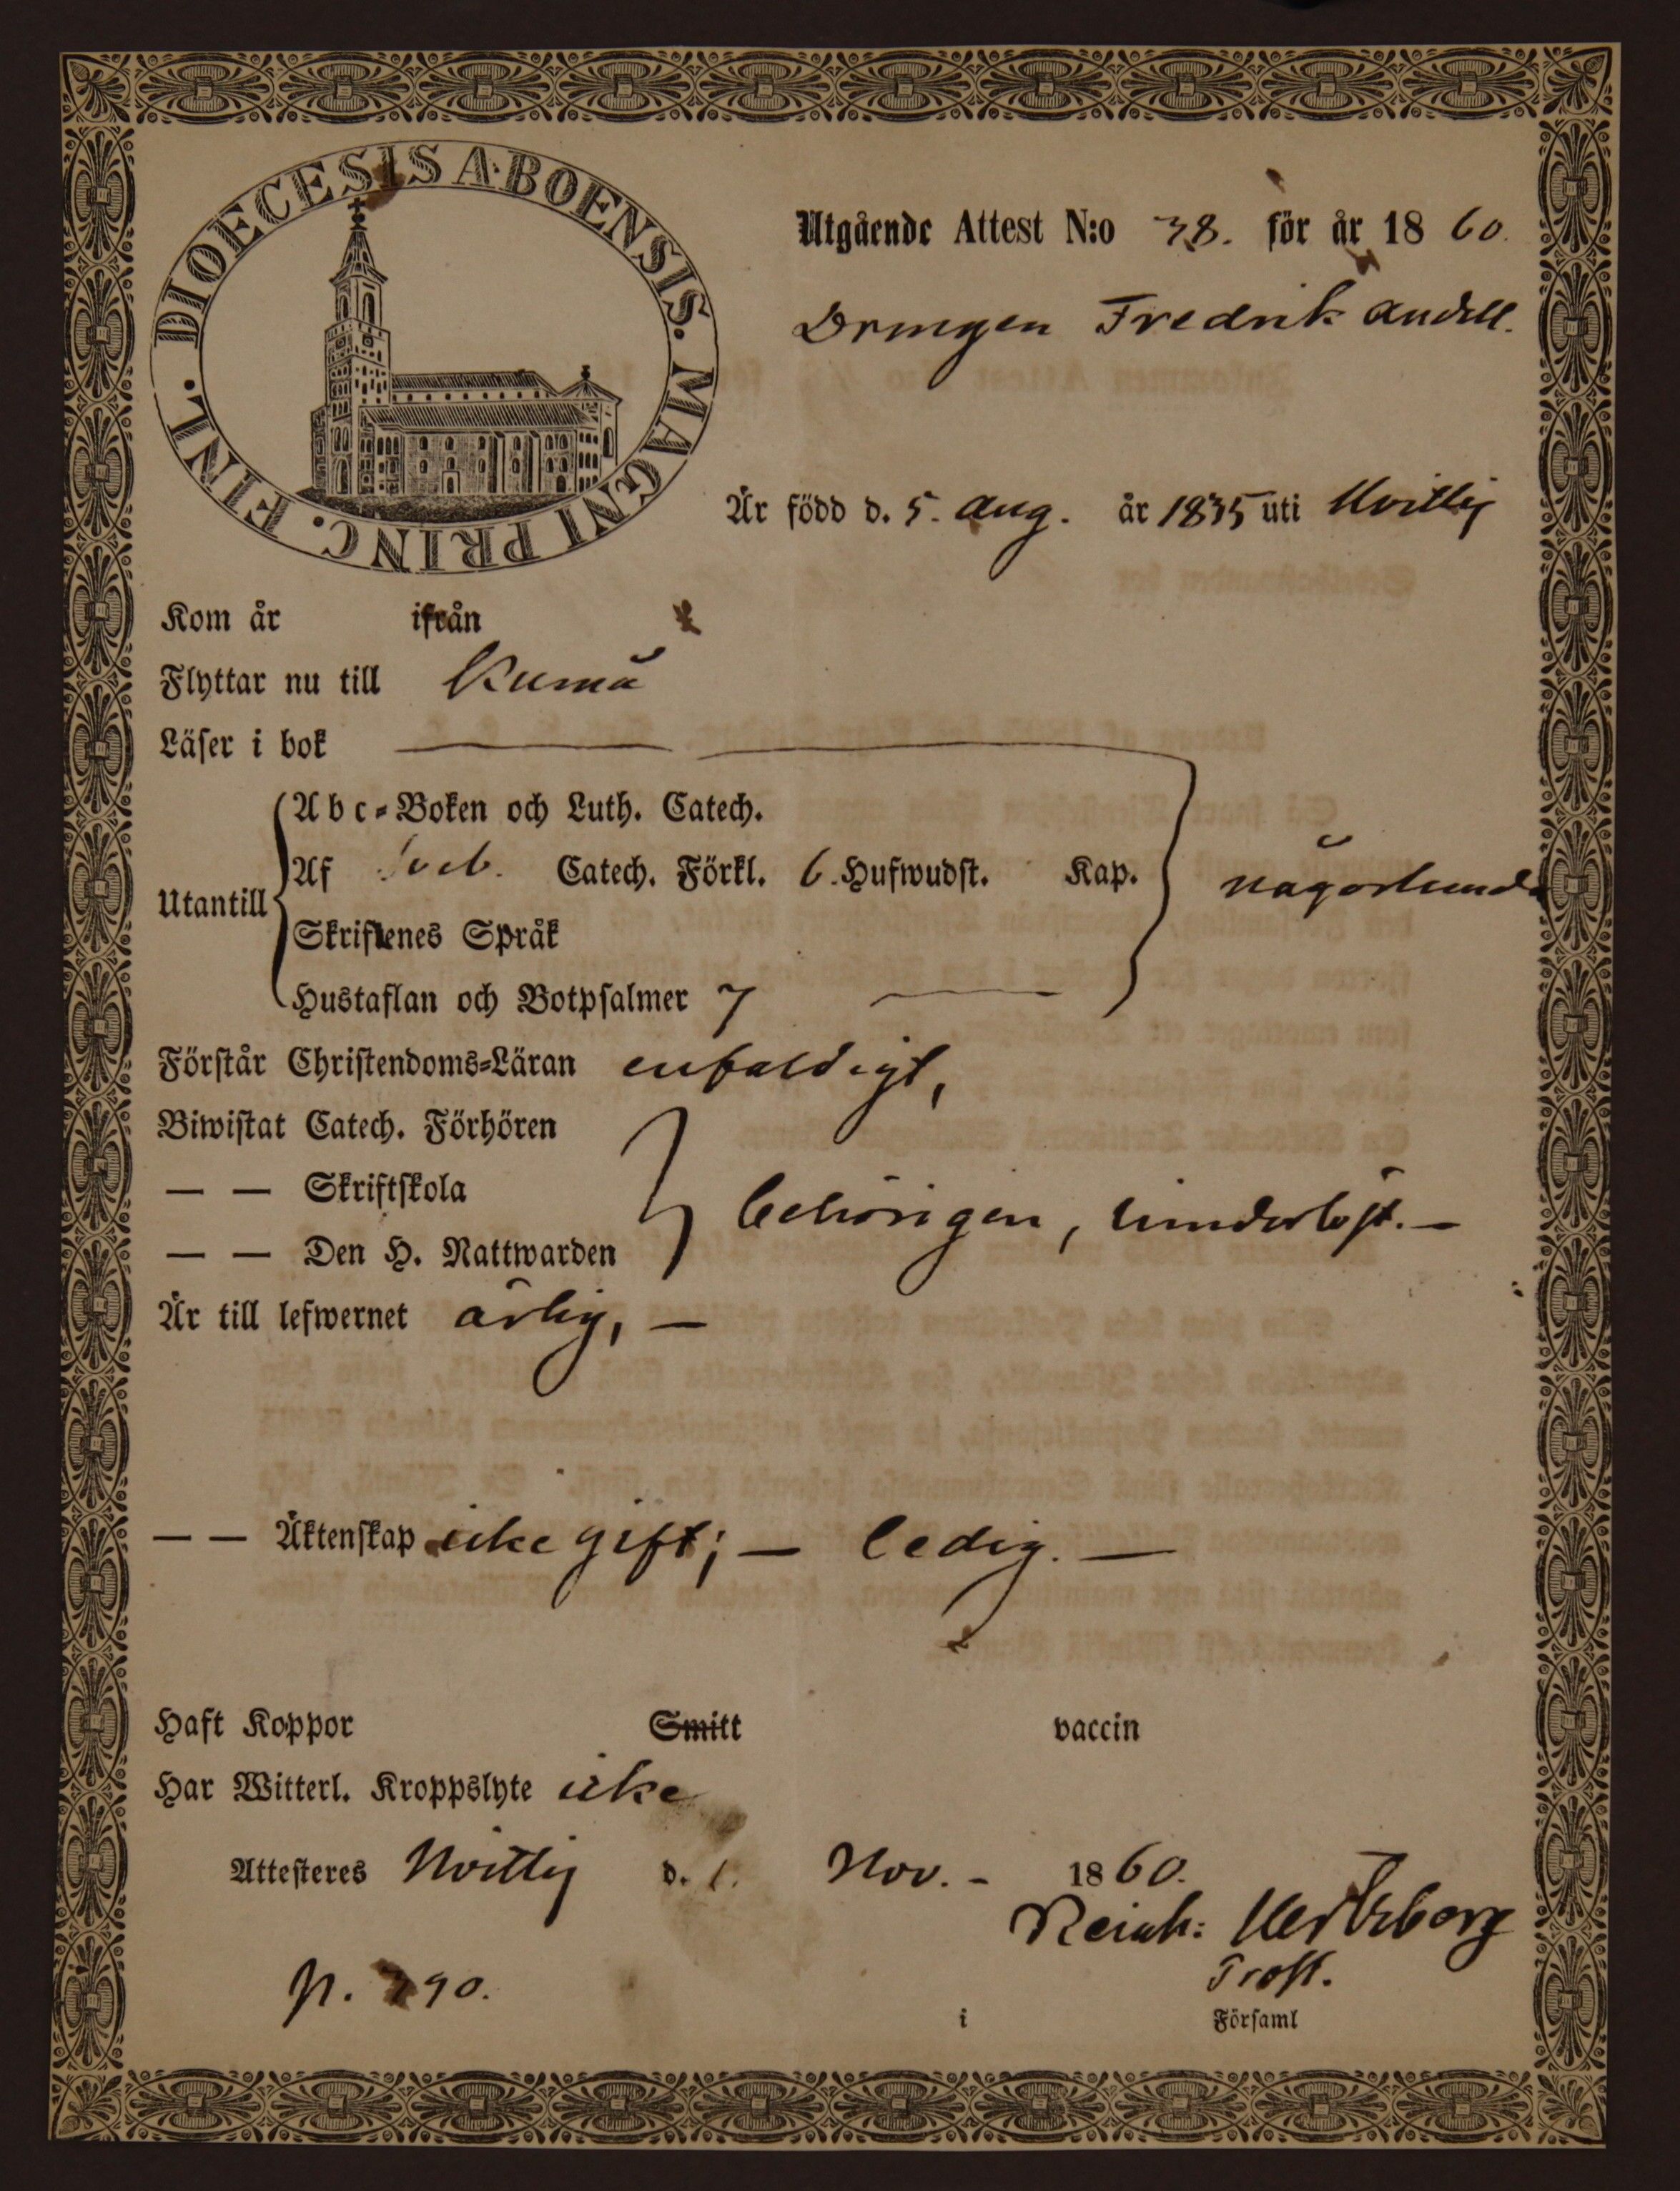 DIOECESIS ABOENSIS. MAGNI PRINC. FINL.
Utgående Attest N:o 38. för år 1860.
Drengen Fredrik Andell.
Är född d. 5. Aug. år 1835 uti Hvittis
Kom år ifrån
Flyttar nu till Kumå
Läser i bok
Utantill
Abc-Boken och Luth. Catech.
Af Sveb. Catech. Förkl. 6. Hufwudst. Kap.
någorlunda
Skriftenes Språk
Hustaflan och Botpsalmer 7
Förstår Christendoms-Läran enfaldigt,
Biwistat Catech. Förhören
— — Skriftskola
behörigen,
— — Den H. Nattwarden
Är till lefwernet ärlig, —
— — Äktenskap icke gift; — ledig. —
Haft Koppor Smitt vaccin
Har Witterl. Kroppslyte icke
Attesteres Hvittis d. 1. Nov. - 1860.
Reinh: Hertzberg
Prost.
p. 390.
i Församl